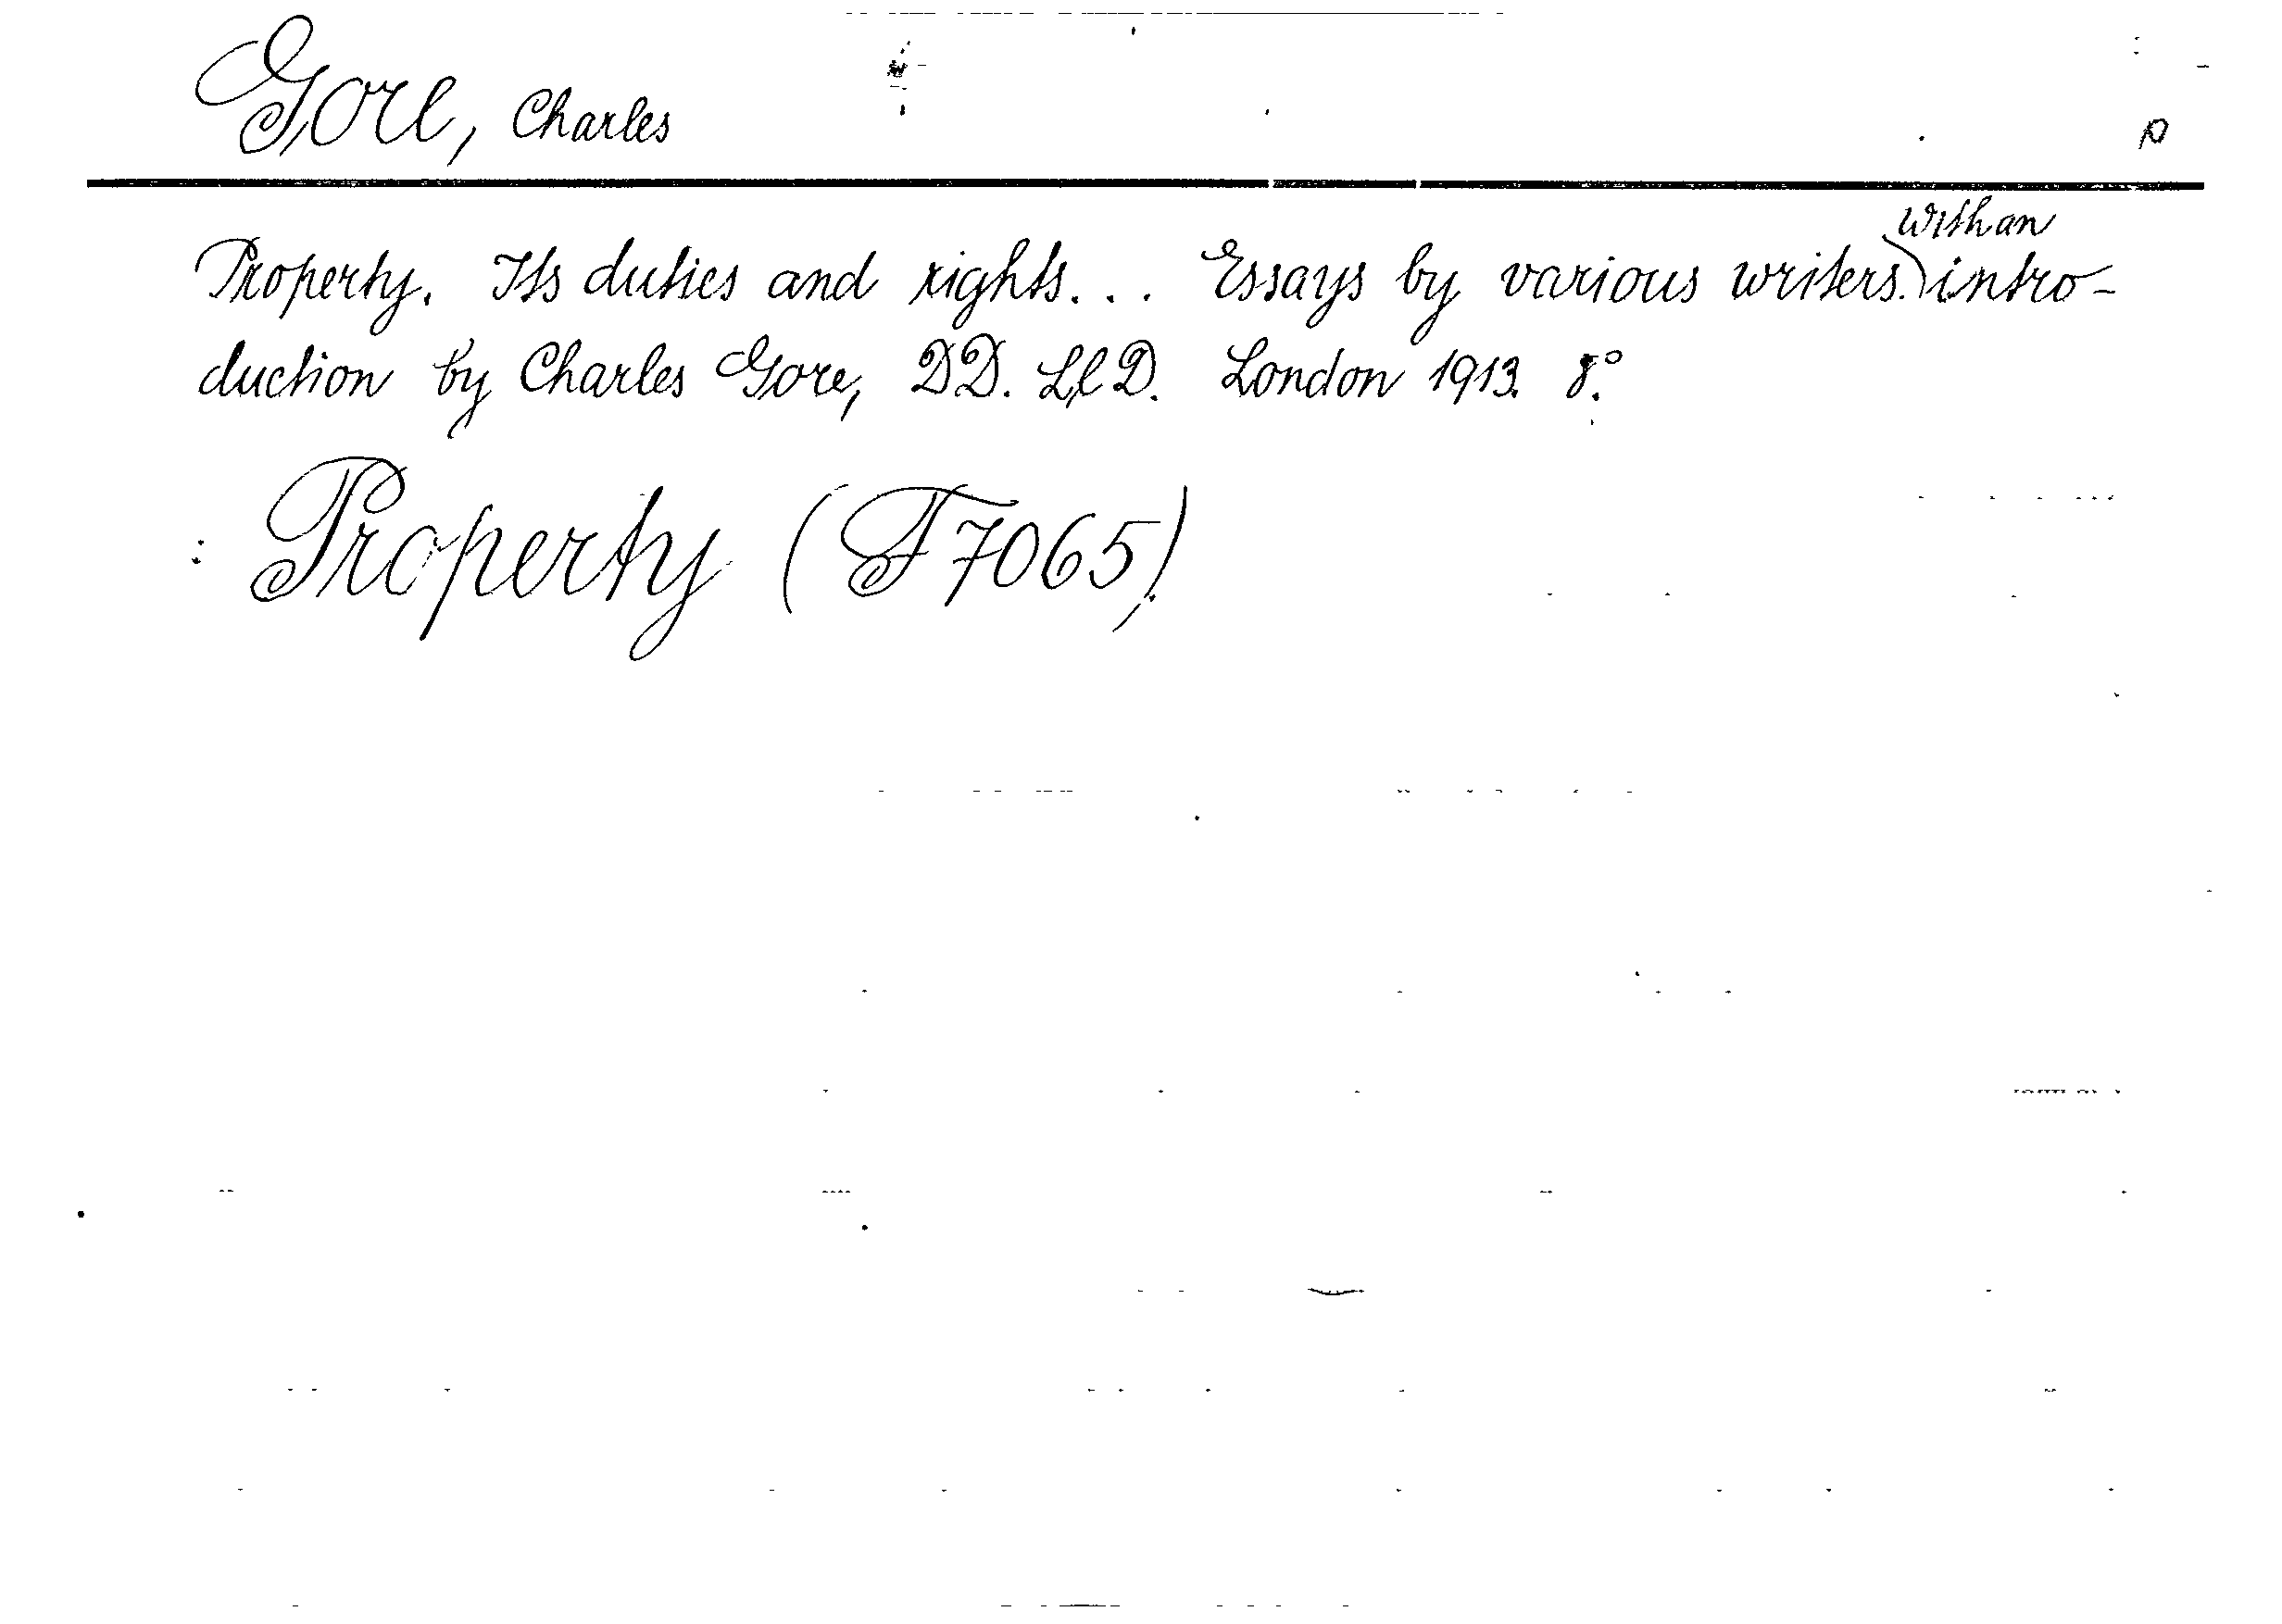 Gore, Charles
p
Property. Its duties and rights... Essays by various writers. with an intro-
duction by Charles Gore, DD. LlD. London 1913. 8°.
: Property (F7065)